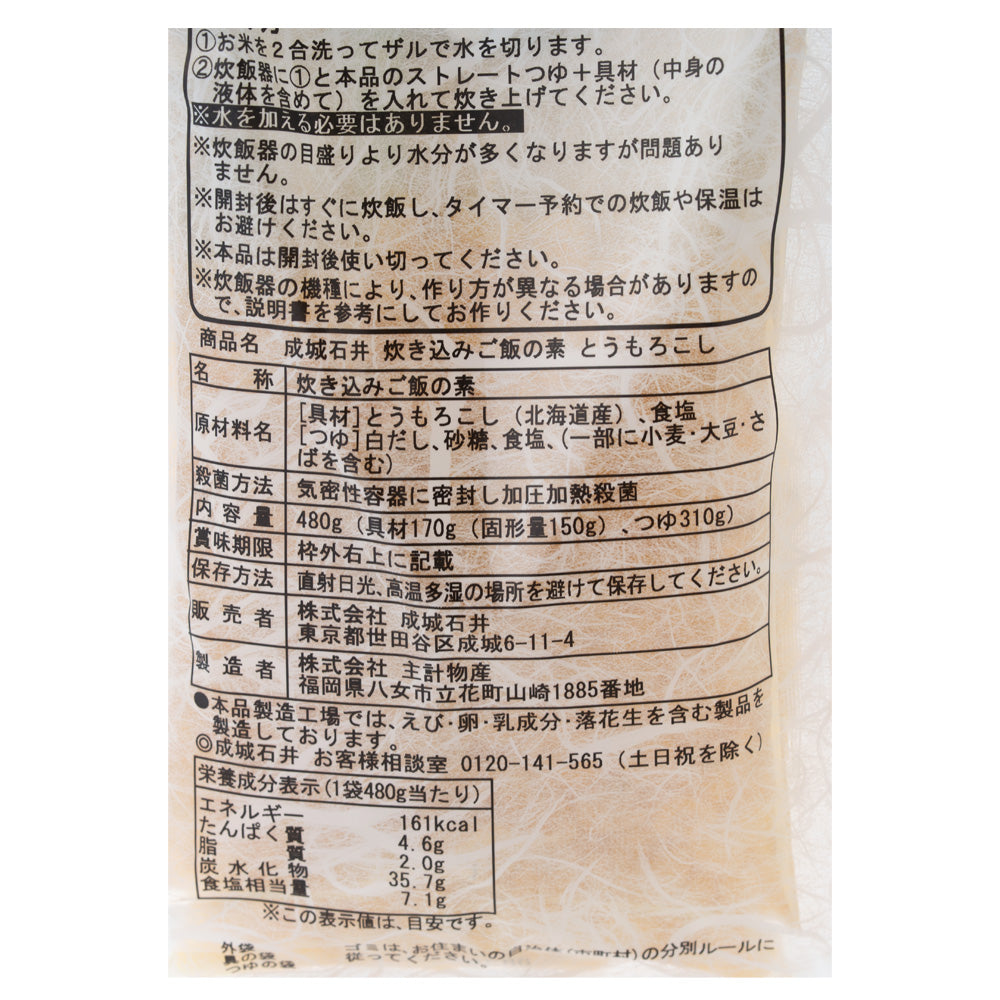 ①お米を2合洗ってザルで水を切ります。
②炊飯器に①と本品のストレートつゆ＋具材（中身の
液体を含めて）を入れて炊き上げてください。
※水を加える必要はありません。
※炊飯器の目盛りより水分が多くなりますが問題あり
ません。
※開封後はすぐに炊飯し、タイマー予約での炊飯や保温は
お避けください。
※本品は開封後使い切ってください。
※炊飯器の機種により、作り方が異なる場合がありますの
で、説明書を参考にしてお作りください。
商品名 成城石井 炊き込みご飯の素 とうもろこし
名称 炊き込みご飯の素
原材料名 [具材]とうもろこし（北海道産）、食塩
[つゆ]白だし、砂糖、食塩、(一部に小麦・大豆・さ
ばを含む)
殺菌方法 気密性容器に密封し加圧加熱殺菌
内容量 480g（具材170g（固形量150g）、つゆ310g）
賞味期限 枠外右上に記載
保存方法 直射日光、高温多湿の場所を避けて保存してください。
販売者 株式会社 成城石井
東京都世田谷区成城6-11-4
製造者 株式会社 主計物産
福岡県八女市立花町山崎1885番地
●本品製造工場では、えび・卵・乳成分・落花生を含む製品を
製造しております。
◎成城石井 お客様相談室 0120-141-565（土日祝を除く）
栄養成分表示(1袋480g当たり)
エネルギー 161kcal
たんぱく質 4.6g
脂質 2.0g
炭水化物 35.7g
食塩相当量 7.1g
※この表示値は、目安です。
外袋
具の袋
つゆの袋
ゴミは、お住まいの自治体(市町村)の分別ルールに
従ってください。